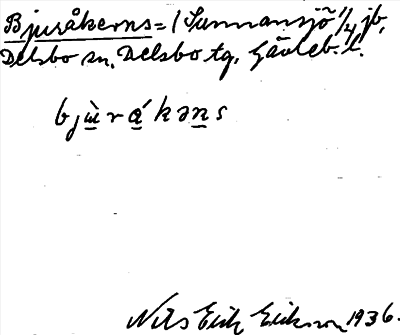 Bjuråkerns = (Sunnansjö 1/4 jb,
Delsbo sn, Delsbo tg, Gävleb. l.
bju̲̇̀rǻ̲kən̲s
Nils Erik Erikson 1936.